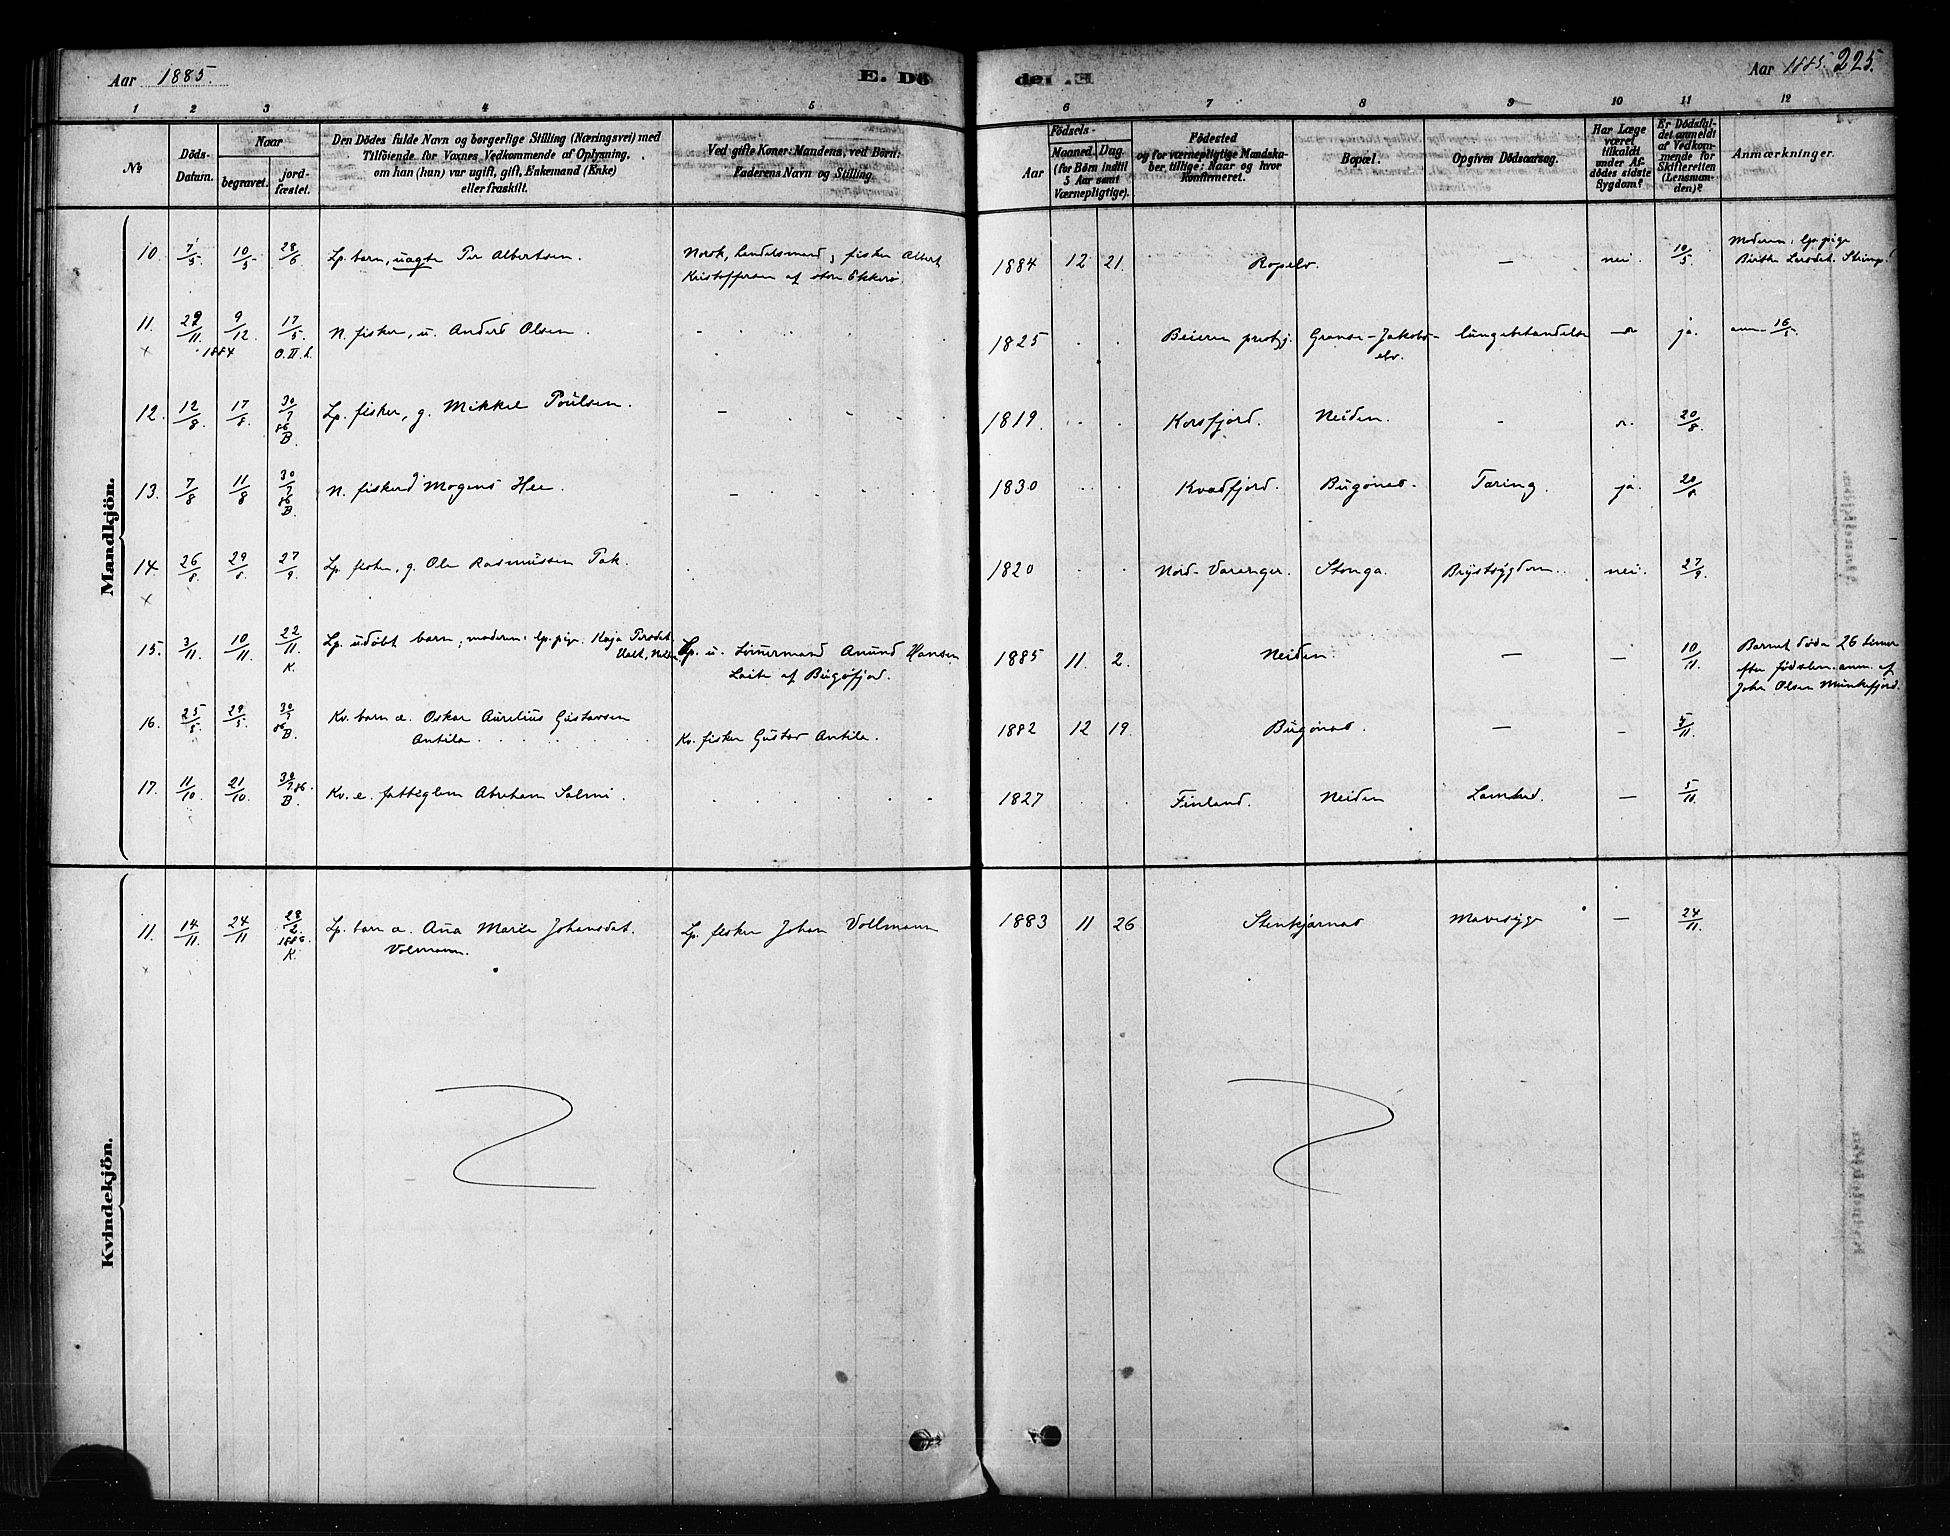 Aar 1885.
E. Dö
der .E
Aar 1885. 225.
1 2 3 4 5 6 7 8 9 10 11 12
No
Döds-Datum.
Naar
begravet.
jord-fæstet.
Den Dödes fulde Navn og borgerlige Stilling (Næringsvei) med
Tilföiende for Voxnes Vedkommende af Oplysning,
om han (hun) var ugift, gift, Enkemand (Enke)
eller fraskilt.
Ved gifte Koner: Mandens, ved Börn:
Faderens Navn og Stilling.
Födsels-
Aar
Maaned. Dag.
(for Börn indtil
5 Aar samt
Værnepligtige).
Födested
og for værnepligtige Mandska-
ber tillige: Naar og hvor
konfirmeret.
Bopæl.
Opgiven Dödsaarsag.
Har Læge
været
tilkaldt
under Af-
dödes sidste
Sygdom?
Er Dödsfal-
det anmeldt
af Vedkom-
mende for
Skifteretten
(Lensman-
den)?
Anmærkninger.
Mandkjön.
10. 7/5. 10/5 28/6 Lp. barn, uægte Per Albertsen. Norsk, fisker Albert
Kristoffersen af store Ekkerö. 1884 12 21. Ropelv. — nei. 10/5. Moderen: lp. pige
11. 22/11. 9/12. 1884 17/5. O.II.L. N. fisker, u. Anders Olsen. 1825 Beieren prestgj. Grænse-Jakobs-
elv. lungebetændelse ja. anm. 16/5
12. 12/8. 17/8. 30/7 86 B. Lp. fisker, g. Mikkel Poulsen. 1819. Korsfjord. Neiden. 20/8.
13. 7/8 11/8 30/7 86 B. N. fisker Mogens Hee. 1830 Kvædfjord. Bugönæs. Tæring. ja. 20/8.
14. 26/8. 29/8. 27/9. Lp. fisker, g. Ole Rasmussen Pak. 1820 Nord-Varanger. Stonga. Brystsygdom. nei. 27/9.
15. 3/11. 10/11. 22/11. K. Lp. udöbt barn, moderen: lp. pige Kaja Persdat.
Lp. u. Anund Hansen
Laiti af Bugöfjord. 1885 11 2. Neiden. — — 10/11. Barnet döde 26 timer
efter födselen. anm. af
John Olsen Munkefjord.
16. 25/5 29/5. 30/7 86 B. Kv. barn æ. Oskar Aurelius Gustavsen
Antila. Kv. fisker Gustav Antila. 1882 12 19. Bugönæs. — 5/11.
17. 11/10. 21/10. 30/7 86. B. Kv. e. fattiglem Abraham Salmi. 1827 Finland. Neiden Lamhed. — 5/11.
Kvindekjön.
11. 14/11. 24/11 28/2. 1886. K. Lp. barn æ. Ana Marie Johansdat.
Volmann. Lp. fisker Johan Vollmann 1883 11 26 Stenkjærnæs Mavesyge — 24/11.